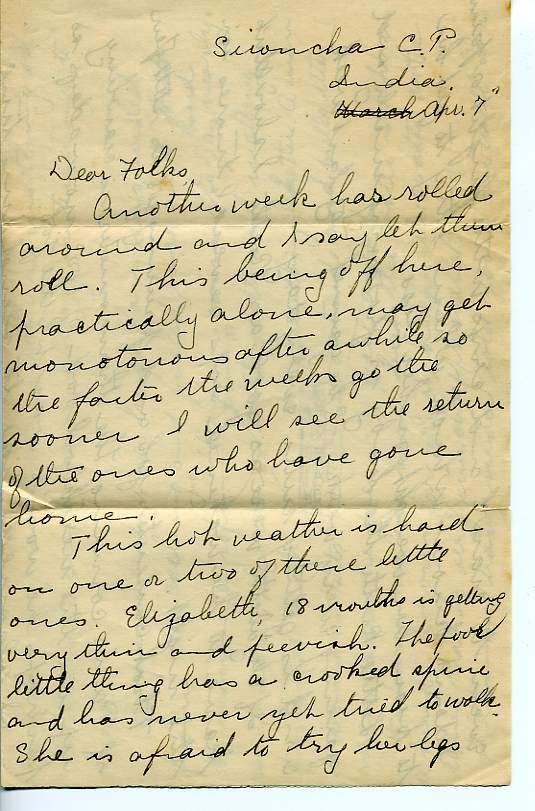 Sironcha C.P.
India.
March Apr. 7"
Dear Folks,
Another week has rolled
around and I say let them
roll. This being off here,
practically alone, may get
monotonous after awhile so
the faster the weeks go the
sooner I will see the return
of the ones who have gone
home.
This hot weather is hard
on one or two of these little
ones. Elizabeth, 18 months is getting
very thin and peevish. The poor
little thing has a crooked spine
and has never yet tried to walk.
She is afraid to try her legs